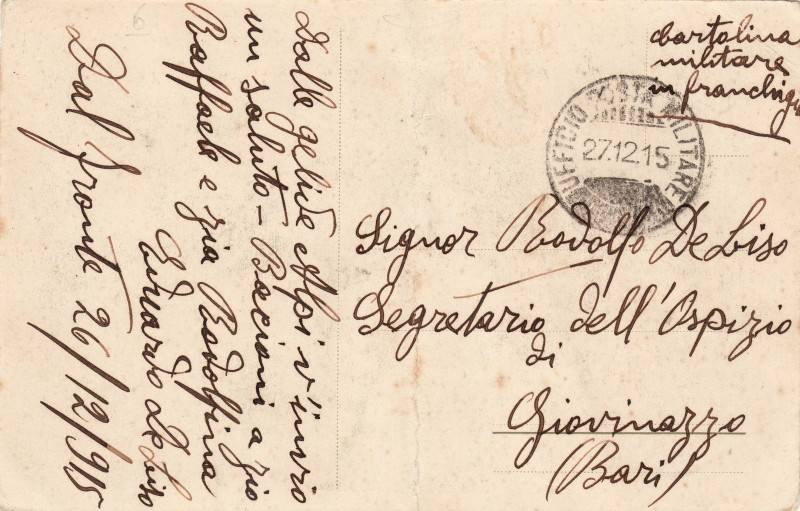 Dalle gelide Alpi v'invio
un saluto - Bacioni a zio
Raffaele e zia Rodolfina
Eduardo De Liso
Dal fronte 26/12/915
cartolina
militare
in franchigia
UFFICIO POSTA MILITARE
27.12.15
Signor Rodolfo De Liso
Segretario dell'Ospizio
di
Giovinazzo
(Bari)